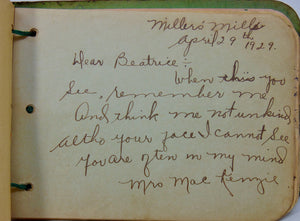 Millers Mills
April 29th 1929.
Dear Beatrice:-
When this you
see, remember me
And think me not unkind
altho your face I cannot see
you are often in my mind
Mrs MacKenzie